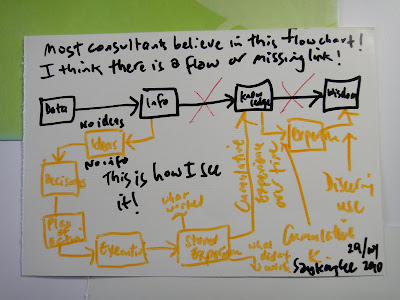 Most consultants believe in this flowchart!
I think there is a flow or missing link!
Data
Info
know
ledge
wisdom
No ideas
Ideas
No info
Decisions
Plan
of
Action
Execution
Stored
Experience
This is how I see
it!
what
worked
what
didn't
work
Cumulative
Experience
over time
Expertise
Cumulative
Discerning
use
29/04
2010